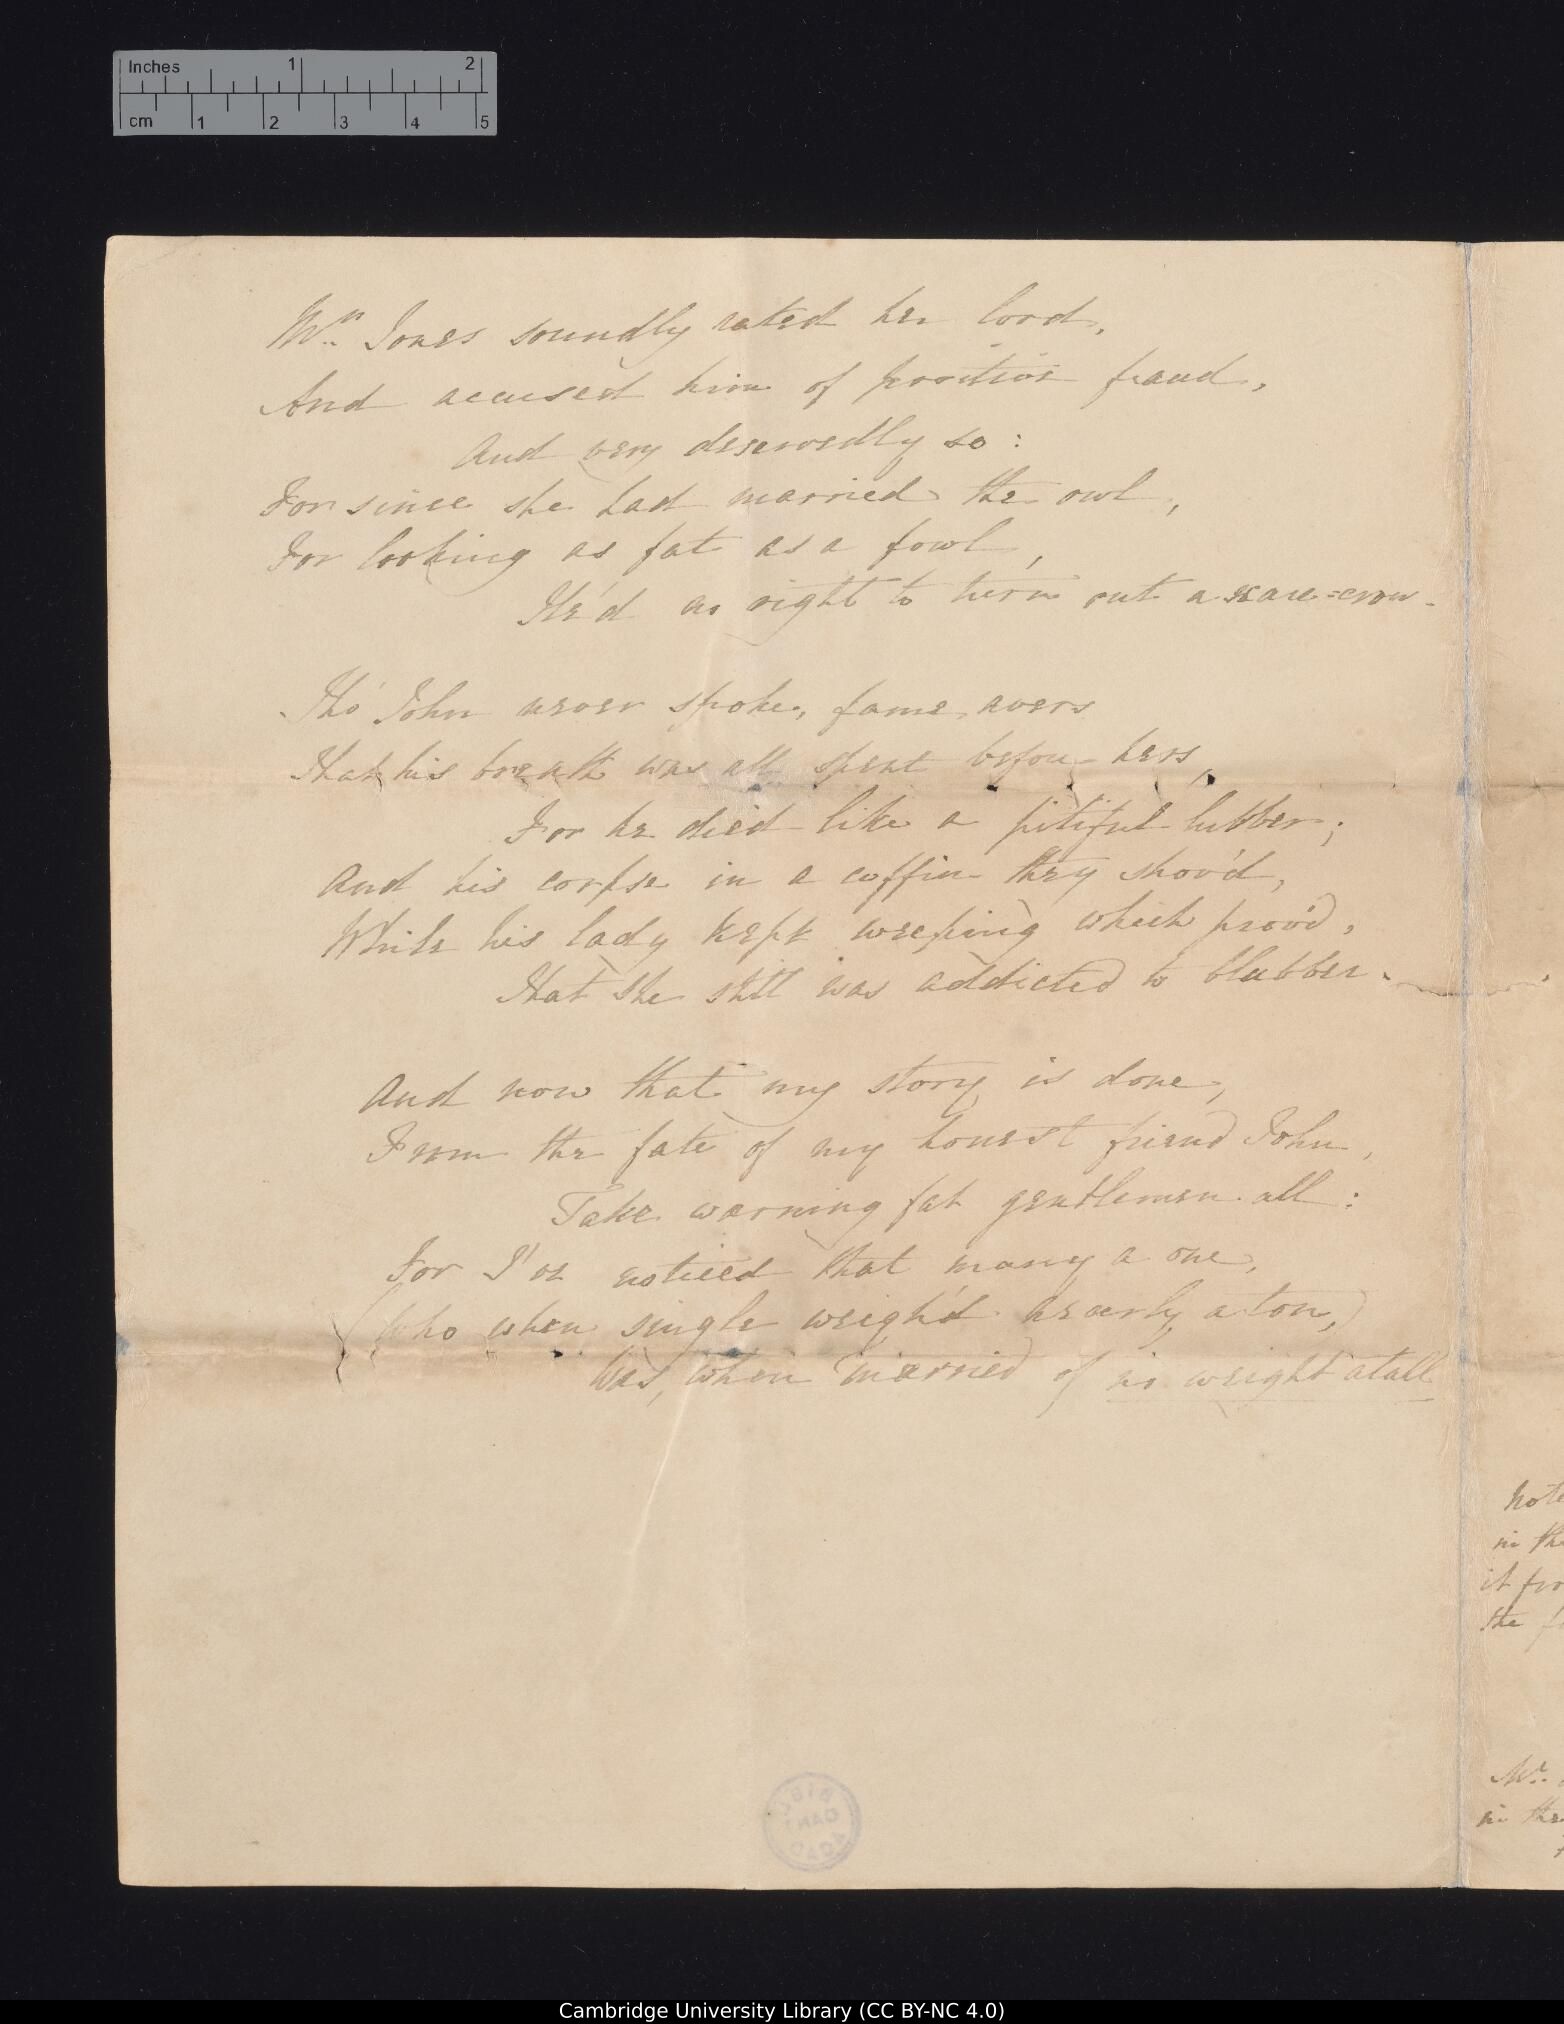 Inches 1 2
cm 1 2 3 4 5
Mrs Jones soundly rated her lord,
And accused him of positive fraud,
And very deservedly so:
For since she had married the owl,
For looking as fat as a fowl,
He'd no right to turn out a scare=crow.
Tho' John never spoke, fame avers
That his breath was all spent before hers,
For he died like a pitiful lubber;
And his corpse in a coffin they shov'd,
While his lady kept weeping which prov'd,
That she still was addicted to blubber.
And now that my story is done,
From the fate of my honest friend John,
Take warning fat gentlemen all:
For I've noticed that many a one,
(Who when single weigh'd nearly a ton,)
Was, when married of no weight at all
Note
in the
it fro
the f
Mr.
in the
BIBL
CAN
ACAD
Cambridge University Library (CC BY-NC 4.0)